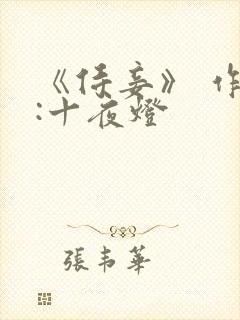 《侍妾》 作
:十夜燈
張韦華